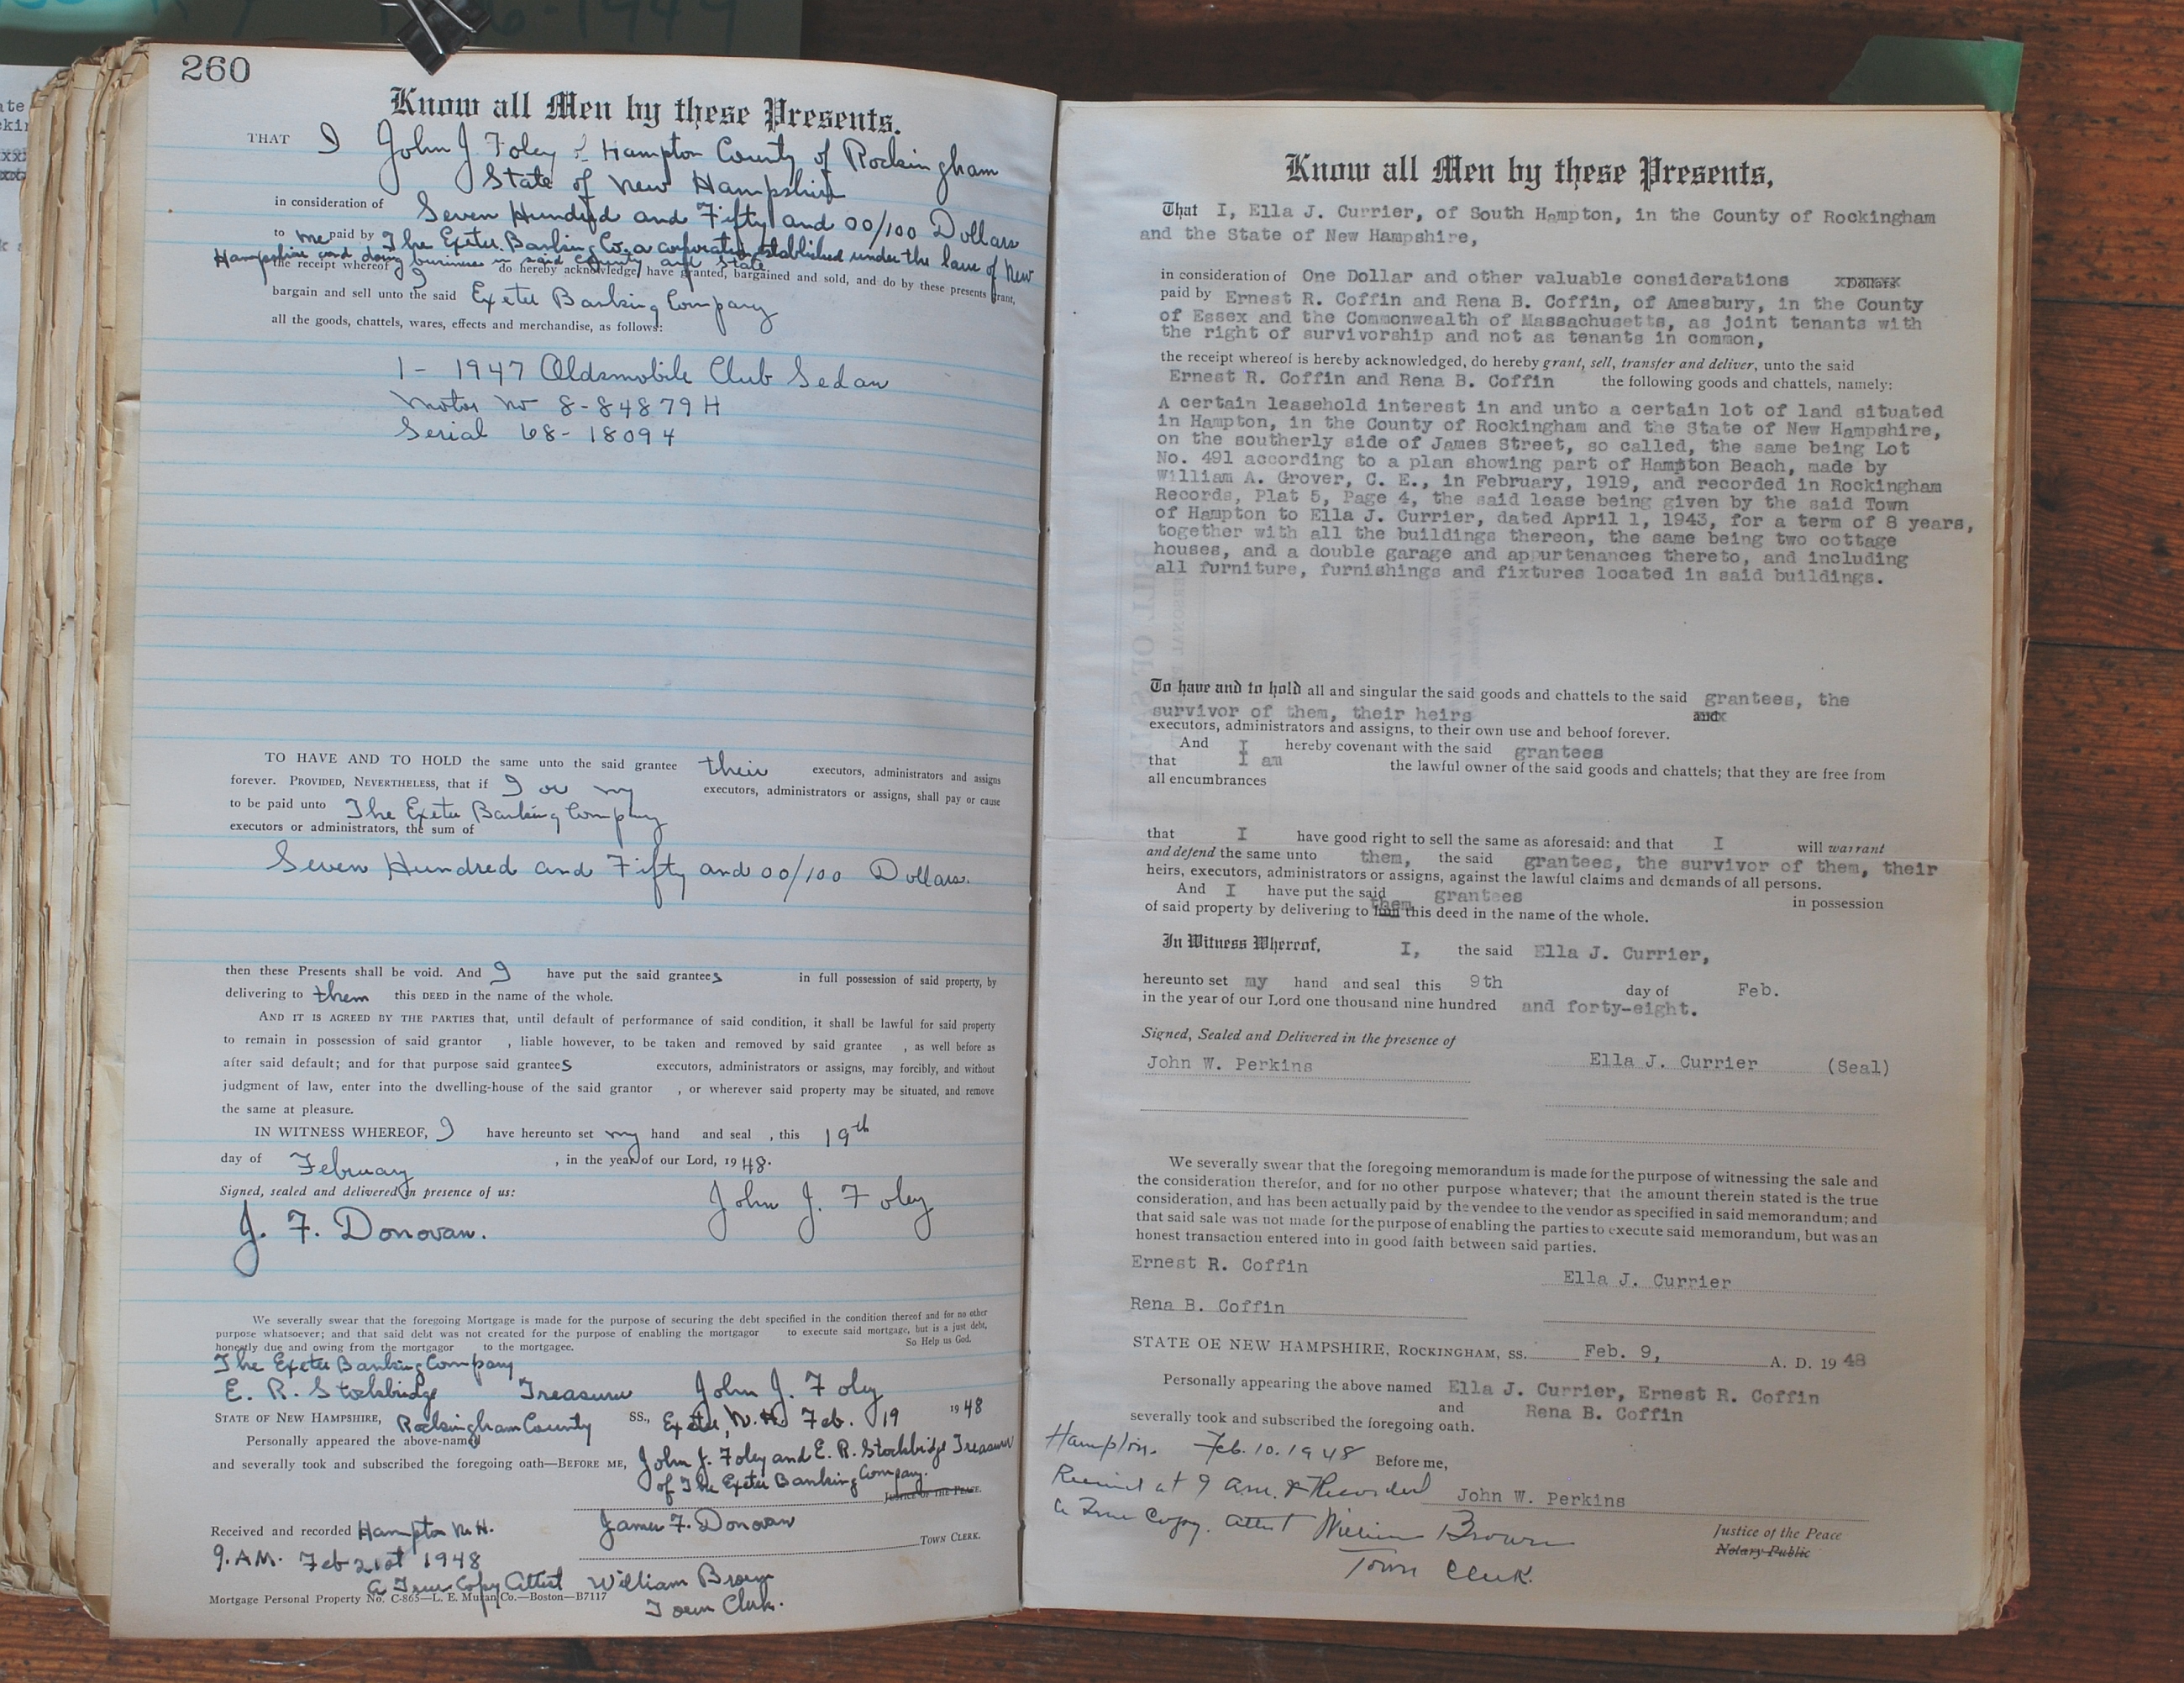 260
Know all Men by these Presents.
THAT I John J Foley of Hampton County of Rockingham
State of New Hampshire
in consideration of Seven Hundred and Fifty and 00/100 Dollars
to me paid by The Exeter Banking Co, a corporation established under the laws of New
Hampshire and doing business in said County and State
the receipt whereof I do hereby acknowledge, have granted, bargained and sold, and do by these presents grant,
bargain and sell unto the said Exeter Banking Company
all the goods, chattels, wares, effects and merchandise, as follows:
1 - 1947 Oldsmobile Club Sedan
Motor No 8-84879H
Serial 68-18094
TO HAVE AND TO HOLD the same unto the said grantee their executors, administrators and assigns
forever. PROVIDED, NEVERTHELESS, that if I or my executors, administrators or assigns, shall pay or cause
to be paid unto The Exeter Banking Company
executors or administrators, the sum of
Seven Hundred and Fifty and 00/100 Dollars.
then these Presents shall be void. And I have put the said grantees in full possession of said property, by
delivering to them this DEED in the name of the whole.
AND IT IS AGREED BY THE PARTIES that, until default of performance of said condition, it shall be lawful for said property
to remain in possession of said grantor , liable however, to be taken and removed by said grantee , as well before as
after said default; and for that purpose said grantees executors, administrators or assigns, may forcibly, and without
judgment of law, enter into the dwelling-house of the said grantor , or wherever said property may be situated, and remove
the same at pleasure.
IN WITNESS WHEREOF, I have hereunto set my hand and seal , this 19th
day of February , in the year of our Lord, 1948.
Signed, sealed and delivered in presence of us:
J. F. Donovan. John J. Foley
We severally swear that the foregoing Mortgage is made for the purpose of securing the debt specified in the condition thereof and for no other
purpose whatsoever; and that said debt was not created for the purpose of enabling the mortgagor to execute said mortgage, but is a just debt,
honestly due and owing from the mortgagor to the mortgagee. So Help us God.
The Exeter Banking Company
E. R. Stockbridge Treasurer John J. Foley
STATE OF NEW HAMPSHIRE, Rockingham County SS., Exeter, N.H. Feb. 19 1948
Personally appeared the above-named
and severally took and subscribed the foregoing oath—BEFORE ME, John J. Foley and E. R. Stockbridge Treasurer
of The Exeter Banking Company.
JUSTICE OF THE PEACE.
James F. Donovan
Received and recorded Hampton N.H.
TOWN CLERK.
9. A.M. Feb 21st 1948
A True Copy Attest William Brown
Town Clerk.
Mortgage Personal Property No. C-865—L. E. Muran Co.—Boston—B7117
Know all Men by these Presents,
That I, Ella J. Currier, of South Hampton, in the County of Rockingham
and the State of New Hampshire,
in consideration of One Dollar and other valuable considerations xDollarsx
paid by Ernest R. Coffin and Rena B. Coffin, of Amesbury, in the County
of Essex and the Commonwealth of Massachusetts, as joint tenants with
the right of survivorship and not as tenants in common,
the receipt whereof is hereby acknowledged, do hereby grant, sell, transfer and deliver, unto the said
Ernest R. Coffin and Rena B. Coffin the following goods and chattels, namely:
A certain leasehold interest in and unto a certain lot of land situated
in Hampton, in the County of Rockingham and the State of New Hampshire,
on the southerly side of James Street, so called, the same being Lot
No. 491 according to a plan showing part of Hampton Beach, made by
William A. Grover, C. E., in February, 1919, and recorded in Rockingham
Records, Plat 5, Page 4, the said lease being given by the said Town
of Hampton to Ella J. Currier, dated April 1, 1943, for a term of 8 years,
together with all the buildings thereon, the same being two cottage
houses, and a double garage and appurtenances thereto, and including
all furniture, furnishings and fixtures located in said buildings.
To have and to hold all and singular the said goods and chattels to the said grantees, the
survivor of them, their heirs and
executors, administrators and assigns, to their own use and behoof forever.
And I hereby covenant with the said grantees
that I am the lawful owner of the said goods and chattels; that they are free from
all encumbrances
that I have good right to sell the same as aforesaid: and that I will warrant
and defend the same unto them, the said grantees, the survivor of them, their
heirs, executors, administrators or assigns, against the lawful claims and demands of all persons.
And I have put the said grantees in possession
of said property by delivering to him them this deed in the name of the whole.
In Witness Whereof, I, the said Ella J. Currier,
hereunto set my hand and seal this 9th day of Feb.
in the year of our Lord one thousand nine hundred and forty-eight.
Signed, Sealed and Delivered in the presence of
John W. Perkins Ella J. Currier (Seal)
We severally swear that the foregoing memorandum is made for the purpose of witnessing the sale and
the consideration therefor, and for no other purpose whatever; that the amount therein stated is the true
consideration, and has been actually paid by the vendee to the vendor as specified in said memorandum; and
that said sale was not made for the purpose of enabling the parties to execute said memorandum, but was an
honest transaction entered into in good faith between said parties.
Ernest R. Coffin Ella J. Currier
Rena B. Coffin
STATE OF NEW HAMPSHIRE, ROCKINGHAM, SS. Feb. 9, A. D. 1948
Personally appearing the above named Ella J. Currier, Ernest R. Coffin
and Rena B. Coffin
severally took and subscribed the foregoing oath.
Hampton. Feb. 10. 1948 Before me,
Received at 9 a.m. & Recorded John W. Perkins
a True Copy. Attest William Brown
Justice of the Peace
Notary Public
Town Clerk.